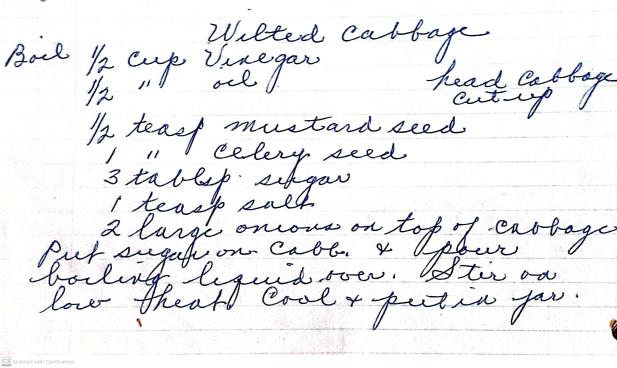 Wilted Cabbage
Boil 1/2 cup Vinegar
1/2 " oil
head Cabbage
cut up
1/2 teasp mustard seed
1 " celery seed
3 tablsp. sugar
1 teasp salt
2 large onions on top of cabbage
Put sugar on Cabb. & pour
boiling liquid over. Stir on
low heat. Cool & put in jar.
CS Scanned with CamScanner